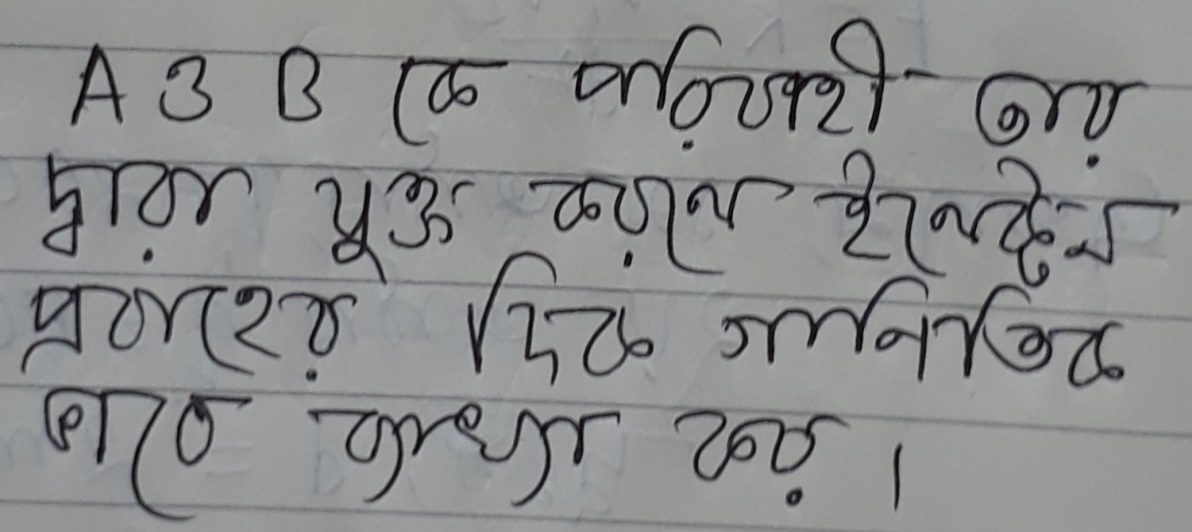 A ও B কে পরিবাহী তার
দ্বারা যুক্ত করলে ইলেকট্রন
প্রবাহের দিক গানিতিক
ভাবে ব্যাখ্যা কর।